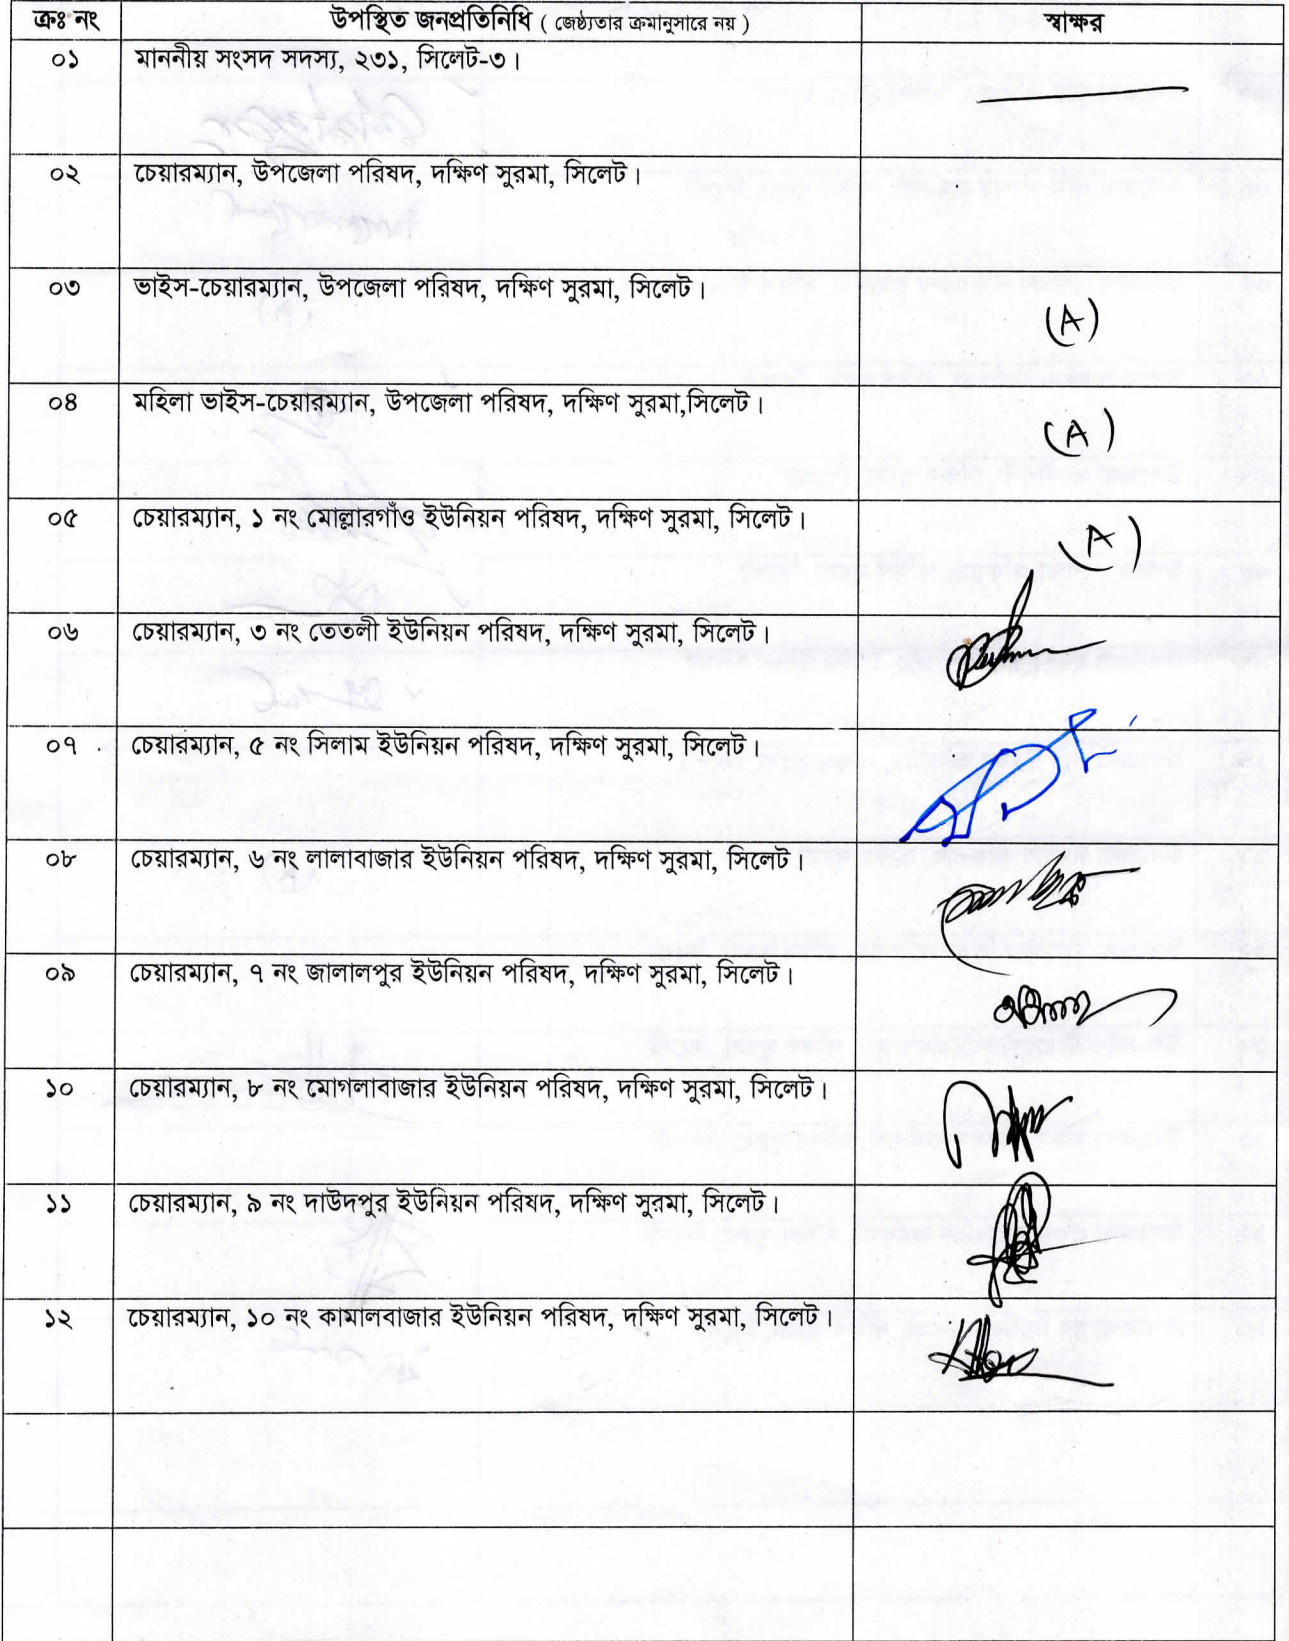 ক্রঃ নং উপস্থিত জনপ্রতিনিধি ( জেষ্ঠ্যতার ক্রমানুসারে নয় ) স্বাক্ষর
০১ মাননীয় সংসদ সদস্য, ২৩১, সিলেট-৩।
০২ চেয়ারম্যান, উপজেলা পরিষদ, দক্ষিণ সুরমা, সিলেট।
০৩ ভাইস-চেয়ারম্যান, উপজেলা পরিষদ, দক্ষিণ সুরমা, সিলেট। (A)
০৪ মহিলা ভাইস-চেয়ারম্যান, উপজেলা পরিষদ, দক্ষিণ সুরমা,সিলেট। (A)
০৫ চেয়ারম্যান, ১ নং মোল্লারগাঁও ইউনিয়ন পরিষদ, দক্ষিণ সুরমা, সিলেট। (A)
০৬ চেয়ারম্যান, ৩ নং তেতলী ইউনিয়ন পরিষদ, দক্ষিণ সুরমা, সিলেট।
০৭ চেয়ারম্যান, ৫ নং সিলাম ইউনিয়ন পরিষদ, দক্ষিণ সুরমা, সিলেট।
০৮ চেয়ারম্যান, ৬ নং লালাবাজার ইউনিয়ন পরিষদ, দক্ষিণ সুরমা, সিলেট।
০৯ চেয়ারম্যান, ৭ নং জালালপুর ইউনিয়ন পরিষদ, দক্ষিণ সুরমা, সিলেট।
১০ চেয়ারম্যান, ৮ নং মোগলাবাজার ইউনিয়ন পরিষদ, দক্ষিণ সুরমা, সিলেট।
১১ চেয়ারম্যান, ৯ নং দাউদপুর ইউনিয়ন পরিষদ, দক্ষিণ সুরমা, সিলেট।
১২ চেয়ারম্যান, ১০ নং কামালবাজার ইউনিয়ন পরিষদ, দক্ষিণ সুরমা, সিলেট।